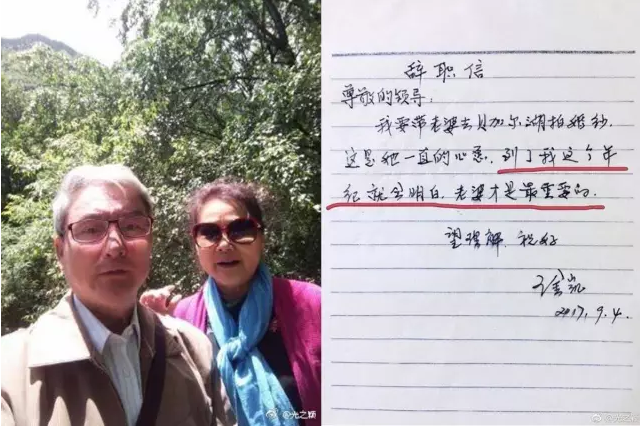 辞职信
尊敬的领导：
我要带老婆去贝加尔湖拍婚纱，
这是她一直的心愿，到了我这个年
纪就会明白，老婆才是最重要的。
望理解 祝好
2017.9.4.
@光之颖
@光之颖